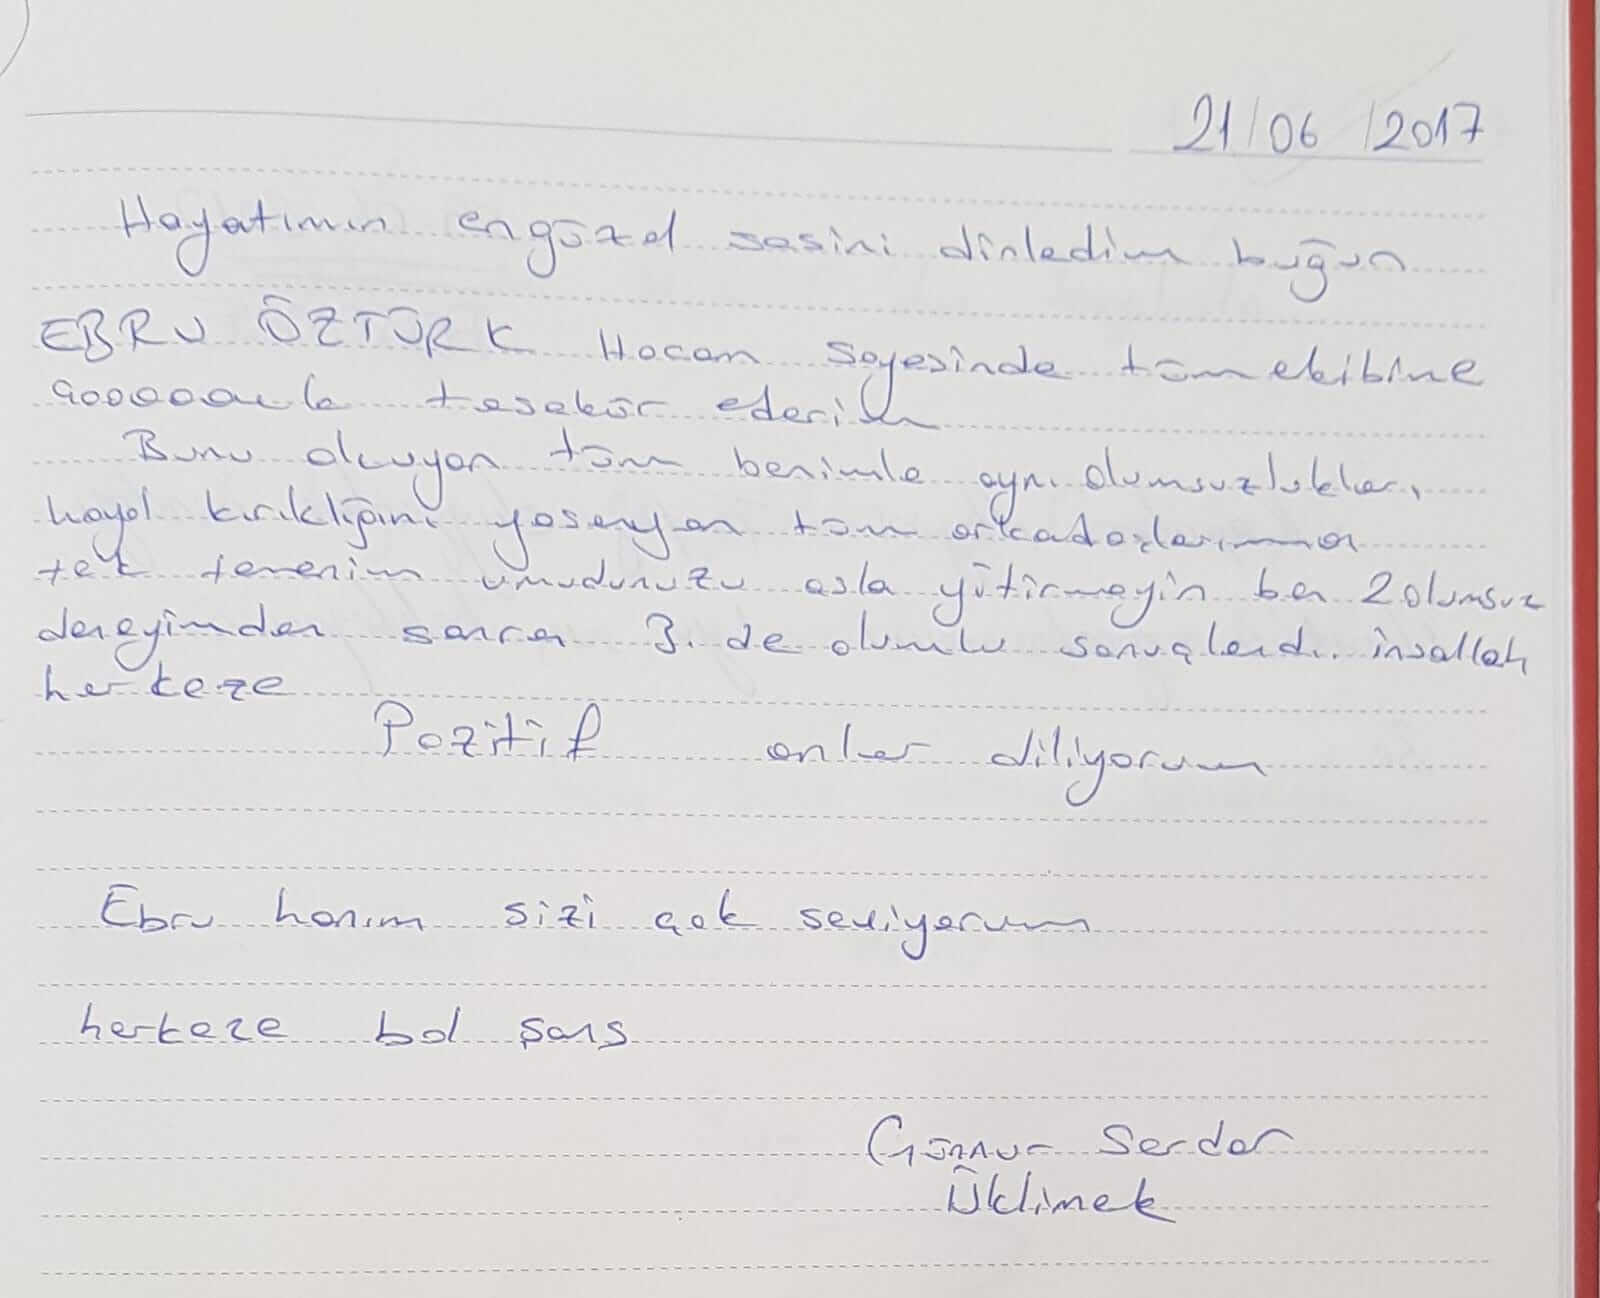 21/06/2017
Hayatımın engüzel sesini dinledim bugün
EBRU ÖZTÜRK Hocam sayesinde tüm ekibine
teşekür ederim
Bunu okuyan tüm benimle aynı olumsuzlukları,
hayal kırıklığını yaşayan tüm arkadaşlarıma
tek temenim umudunuzu asla yitirmeyin ben 2 olumsuz
deneyimden sonra 3. de olumlu sonuçlandı. inşallah
herkeze
Pozitif anlar diliyorum
Ebru hanım sizi çok seviyorum
herkeze bol şans
Serdar